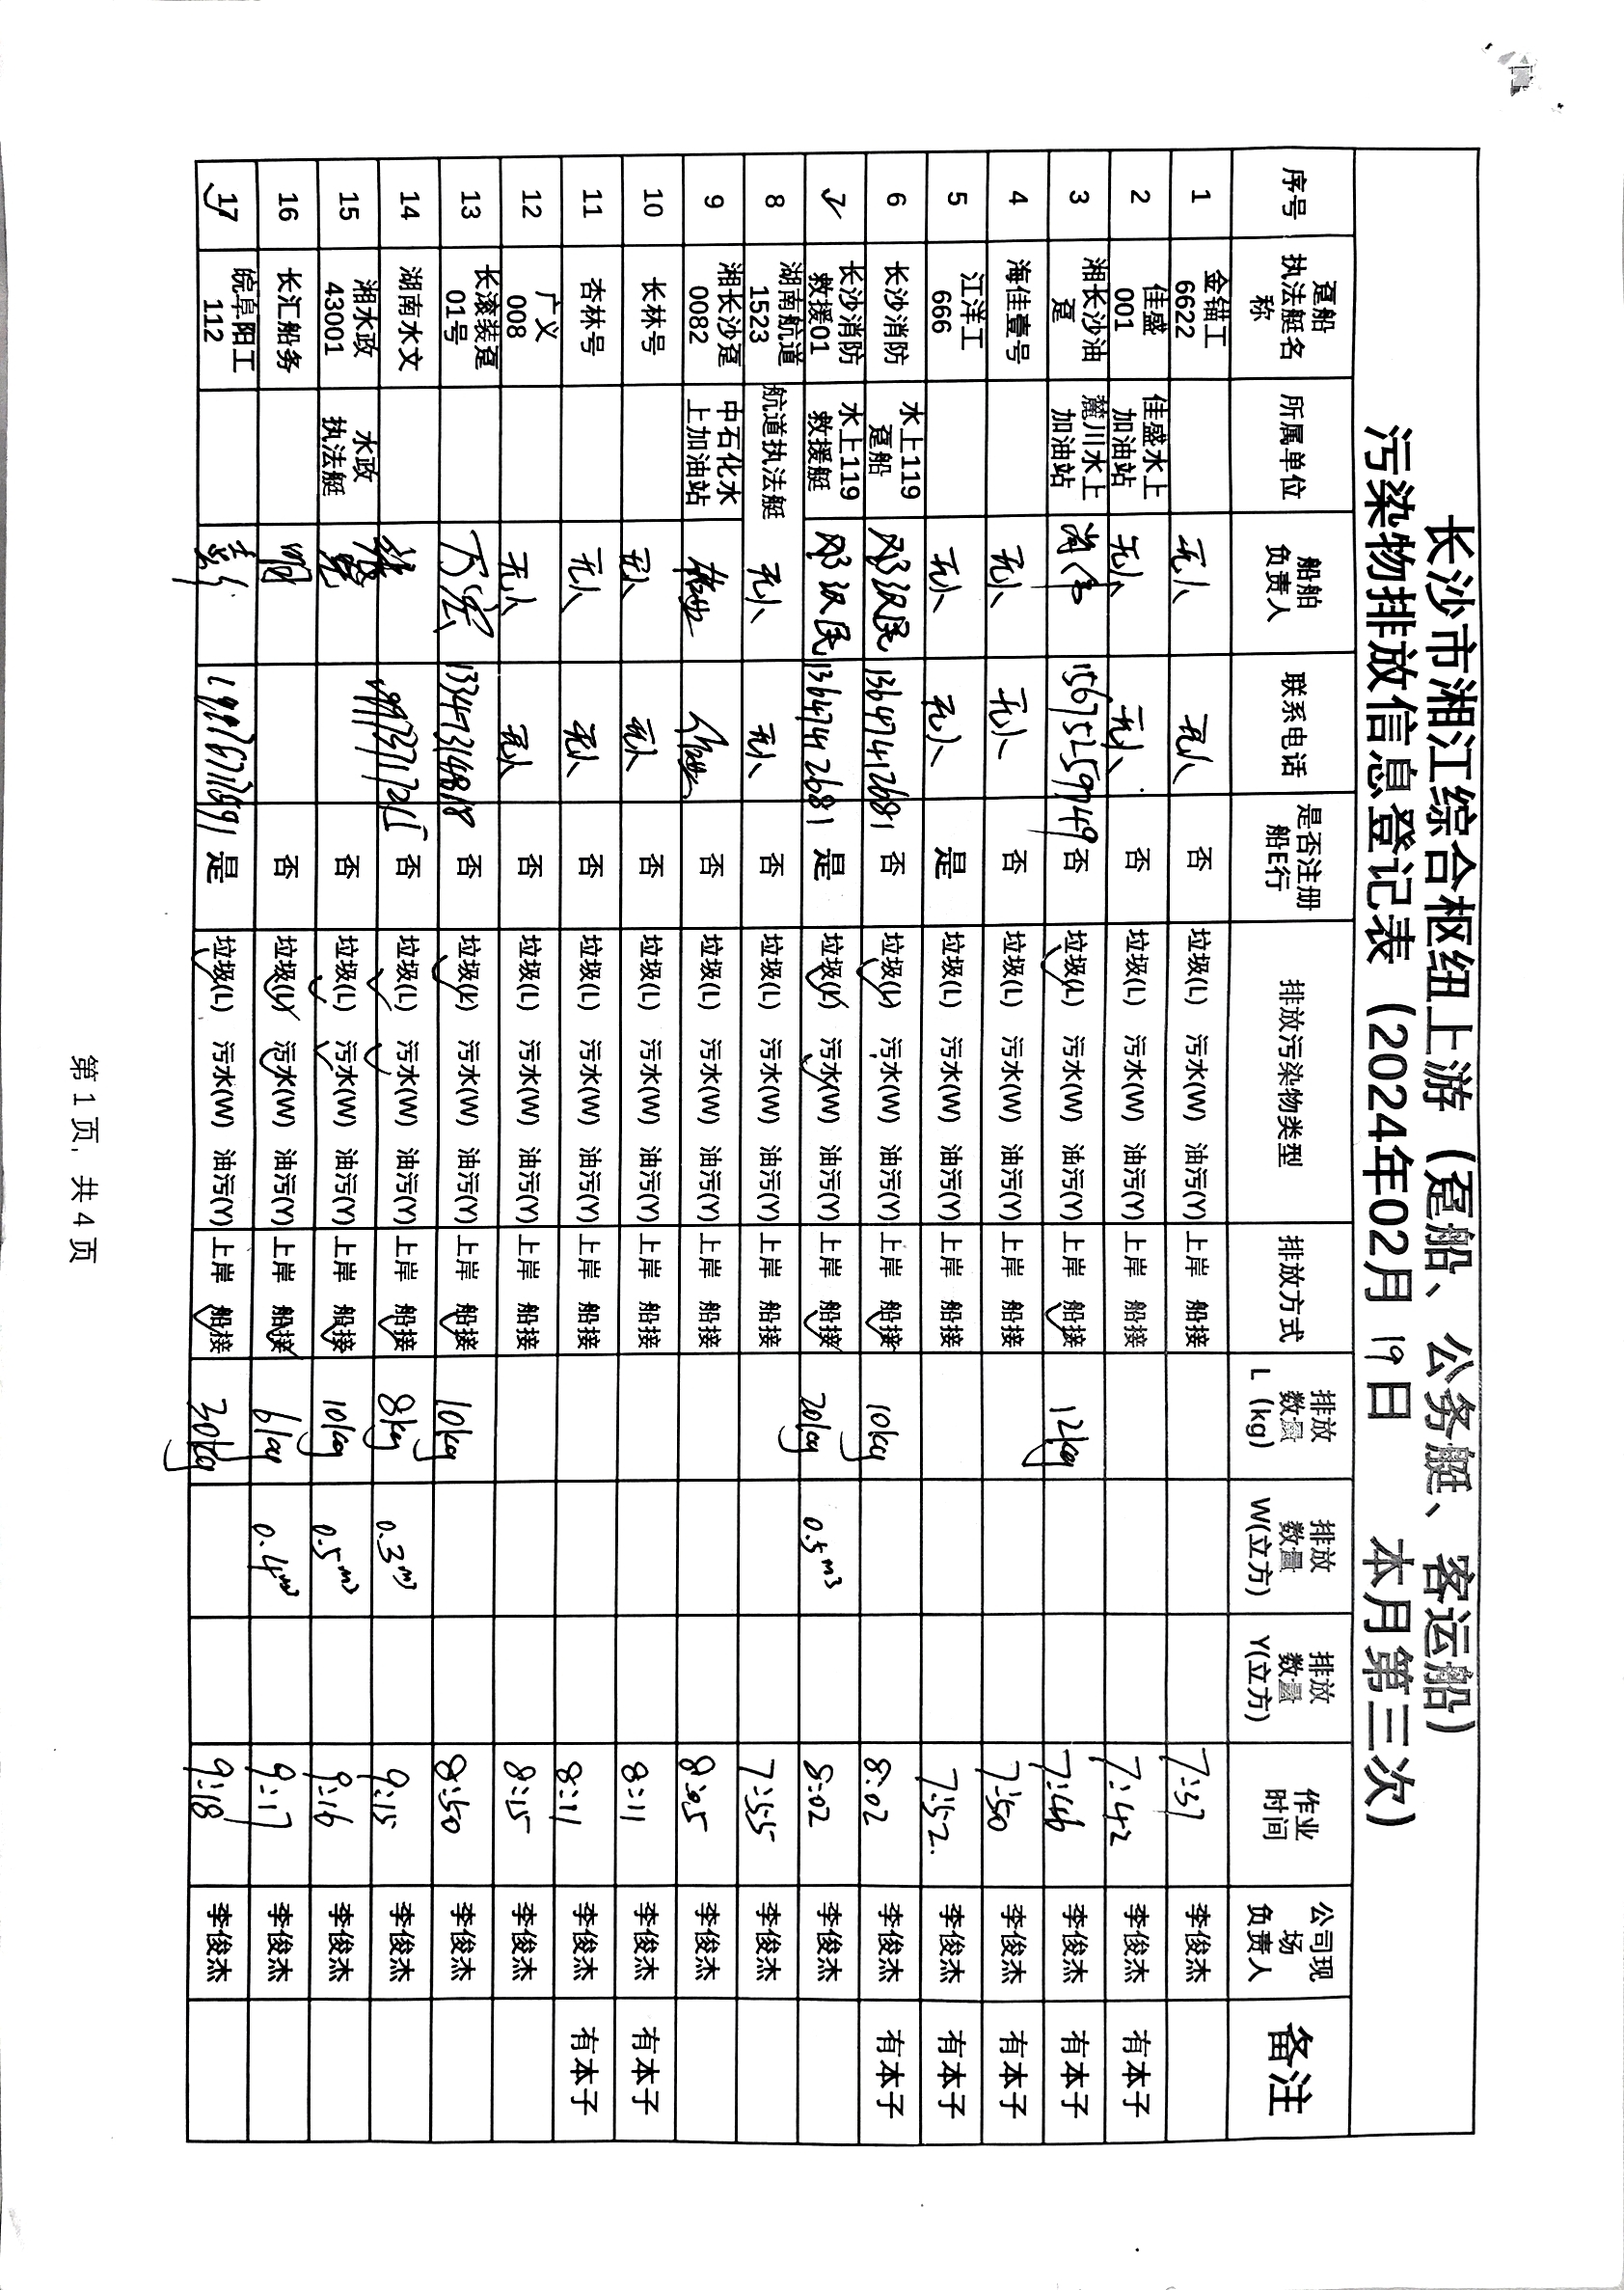 长沙市湘江综合枢纽上游（趸船、公务艇、客运船）
污染物排放信息登记表（2024年02月 19日 本月第三次）
序号 趸船执法艇名称 所属单位 船舶负责人 联系电话 是否注册船E行 排放污染物类型 排放方式 排放数量L（kg） 排放数量W(立方) 排放数量Y(立方) 作业时间 公司现场负责人 备注
1 金锚工6622 无人 无人 否 垃圾(L) 污水(W) 油污(Y) 上岸 船接 7:37 李俊杰
2 佳盛001 佳盛水上加油站 无人 无人 否 垃圾(L) 污水(W) 油污(Y) 上岸 船接 7:42 李俊杰 有本子
3 湘长沙油趸 麓川水上加油站 15675259749 否 垃圾(L) 污水(W) 油污(Y) 上岸 船接 12kg 7:46 李俊杰 有本子
4 海佳壹号 无人 无人 否 垃圾(L) 污水(W) 油污(Y) 上岸 船接 7:50 李俊杰 有本子
5 江洋工666 无人 无人 是 垃圾(L) 污水(W) 油污(Y) 上岸 船接 7:52 李俊杰 有本子
6 长沙消防 水上119趸船 邓汉民 13647412681 否 垃圾(L) 污水(W) 油污(Y) 上岸 船接 10kg 8:02 李俊杰 有本子
7 长沙消防救援01 水上119救援艇 邓汉民 13647412681 是 垃圾(L) 污水(W) 油污(Y) 上岸 船接 20kg 0.5m3 8:02 李俊杰
8 湖南航道1523 航道执法艇 无人 无人 否 垃圾(L) 污水(W) 油污(Y) 上岸 船接 7:55 李俊杰
9 湘长沙趸0082 中石化水上加油站 否 垃圾(L) 污水(W) 油污(Y) 上岸 船接 8:05 李俊杰
10 长林号 无人 无人 否 垃圾(L) 污水(W) 油污(Y) 上岸 船接 8:11 李俊杰 有本子
11 杏林号 无人 无人 否 垃圾(L) 污水(W) 油污(Y) 上岸 船接 8:11 李俊杰 有本子
12 广义008 无人 无人 否 垃圾(L) 污水(W) 油污(Y) 上岸 船接 8:15 李俊杰
13 长滚装趸01号 13347314818 否 垃圾(L) 污水(W) 油污(Y) 上岸 船接 10kg 8:50 李俊杰
14 湖南水文 否 垃圾(L) 污水(W) 油污(Y) 上岸 船接 8kg 0.3m3 9:15 李俊杰
15 湘水政43001 水政执法艇 否 垃圾(L) 污水(W) 油污(Y) 上岸 船接 10kg 0.5m3 9:16 李俊杰
16 长汇船务 否 垃圾(L) 污水(W) 油污(Y) 上岸 船接 6kg 0.4m3 9:17 李俊杰
17 皖阜阳工112 19976717891 是 垃圾(L) 污水(W) 油污(Y) 上岸 船接 30kg 9:18 李俊杰
第 1 页, 共 4 页